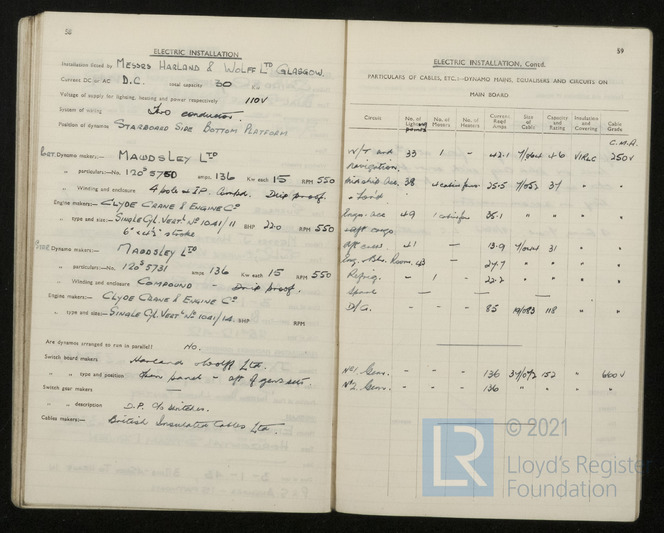 58
ELECTRIC INSTALLATION
Installation fitted by MESSRS HARLAND & WOLFF LTD GLASGOW.
Current DC or AC D.C. total capacity 30
Voltage of supply for lighting, heating and power respectively 110V
System of wiring Two conductor.
Position of dynamos STARBOARD SIDE BOTTOM PLATFORM
Dynamo makers:— MAWDSLEY LTD
„ particulars:—No. 120S5750 amps 136 Kw each 15 RPM 550
„ Winding and enclosure 4 pole & I.P. Compd. Drip proof.
Engine makers:— CLYDE CRANE & ENGINE CO
„ type and size:— SINGLE CYL. VERTL NO 1041/11 BHP 22.0 RPM 550
Dynamo makers:— MAWDSLEY LTD
„ particulars:—No. 120S5731 amps 136 Kw each 15 RPM 550
„ Winding and enclosure COMPOUND – Drip proof.
Engine makers:— CLYDE CRANE & ENGINE CO
„ type and size:— SINGLE CYL. VERTL NO 1041/14 BHP RPM
Are dynamos arranged to run in parallel? NO.
Switch board makers Harland & Wolff Ltd.
„ „ type and position Open panel – aft of gen sets.
Switch gear makers
„ „ description D.P. C/o Switches.
Cables makers:— British Insulated Cables Ltd.
59
ELECTRIC INSTALLATION, Contd.
PARTICULARS OF CABLES, ETC.:—DYNAMO MAINS, EQUALISERS AND CIRCUITS ON
MAIN BOARD
Circuit No. of Lighting points No. of Motors No. of Heaters Current Reqd Amps Size of Cable Capacity and Rating Insulation and Covering Cable Grade
C.M.A.
W/T and 33 1 - 42.1 7/064 46 VIRLC 250V
navigation.
Midship Acc. 38 25.5 7/052 37 „ „
& Ford
Engs. Acc 49 35.1 „ „ „ „
& aft
Aft 41 – 13.9 7/044 31 „ „
Eng. & Blr. Room. 43 24.7 „ „ „ „
Refrig. – 1 – 22.2 „ „ „ „
Spare — — —
D/G. – – – 85 19/083 118 „ „
No1 Gen. - - - 136 37/072 152 „ 600V
No2 Gen. - - - 136 „ „ „ „
© 2021
LR
Lloyd's Register
Foundation